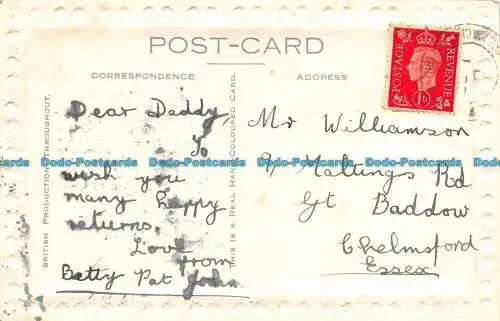 POST-CARD
CORRESPONDENCE
ADDRESS
BRITISH PRODUCTION THROUGHOUT.
THIS IS A REAL HAND COLOURED CARD.
POSTAGE
REVENUE
1D
Dear Daddy,
To
wish you
many happy
returns.
Love
from
Betty Pat John
Mr Williamson
9/ Maltings Rd
Gt Baddow
Chelmsford
Essex
Dodo-Postcards Dodo-Postcards Dodo-Postcards Dodo-Postcards Dodo-Postcards